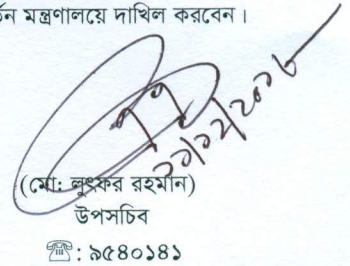 মন্ত্রণালয়ে দাখিল করবেন।
(মো: লুৎফর রহমান)
উপসচিব
☎: ৯৫৪০১৪১